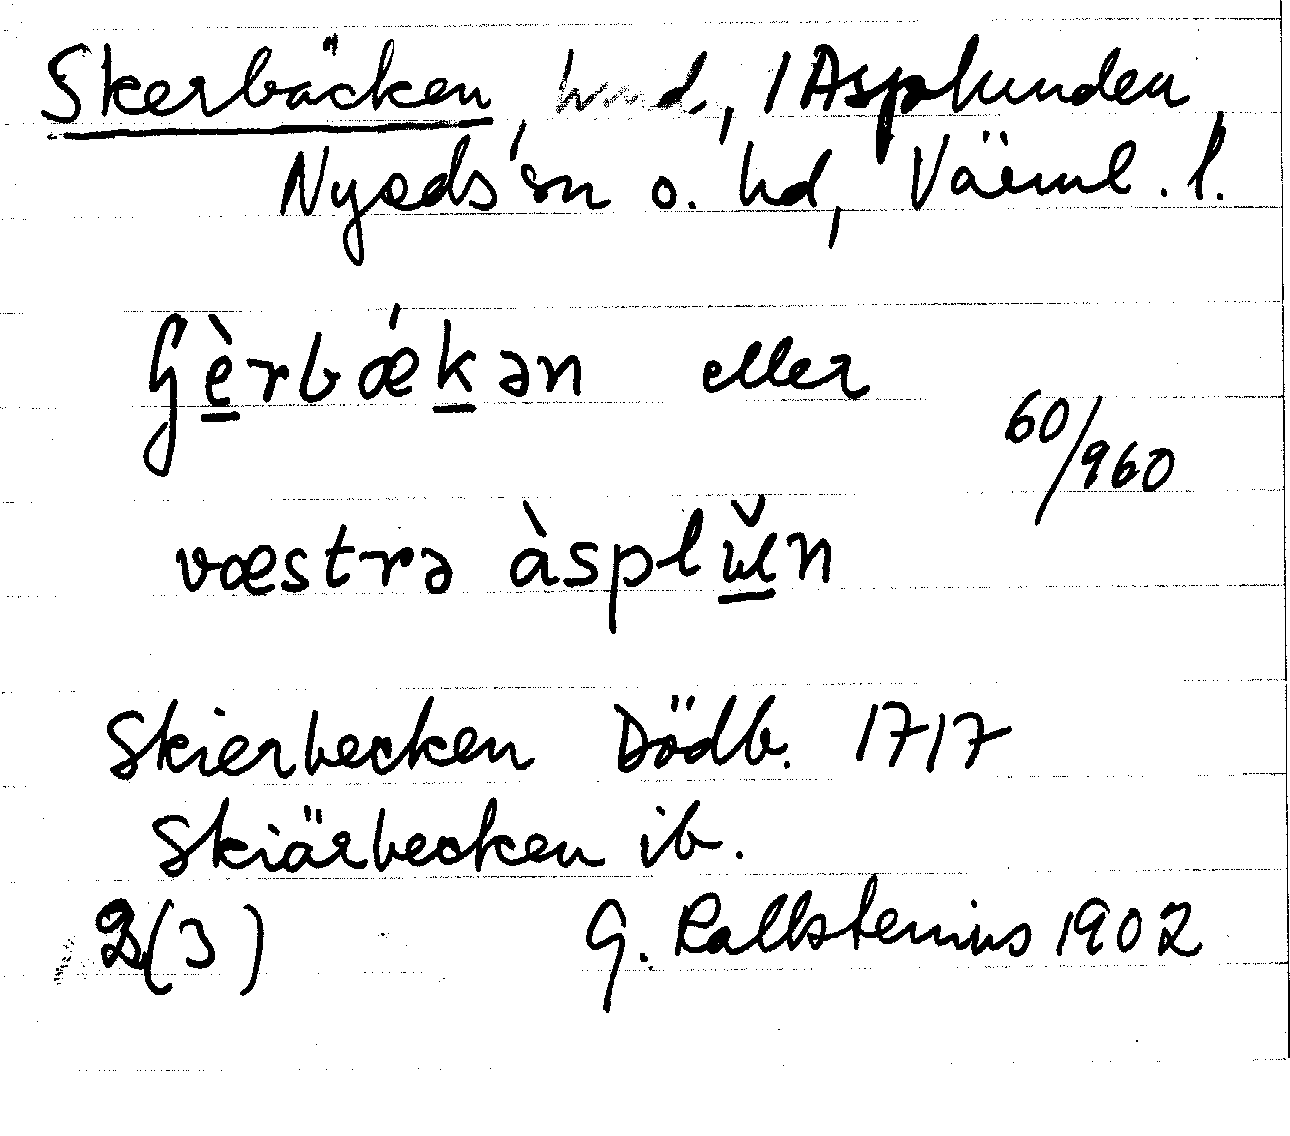 Skerbäcken, hmd, 1 Asplunden,
Nyeds sn o. hd, Värml. l.
Gèrbǽkən eller
60/960
væstrə àsplŭn
Skierbecken Dödb. 1717
Skiärbecken ib.
2(3) G. Kallstenius 1902